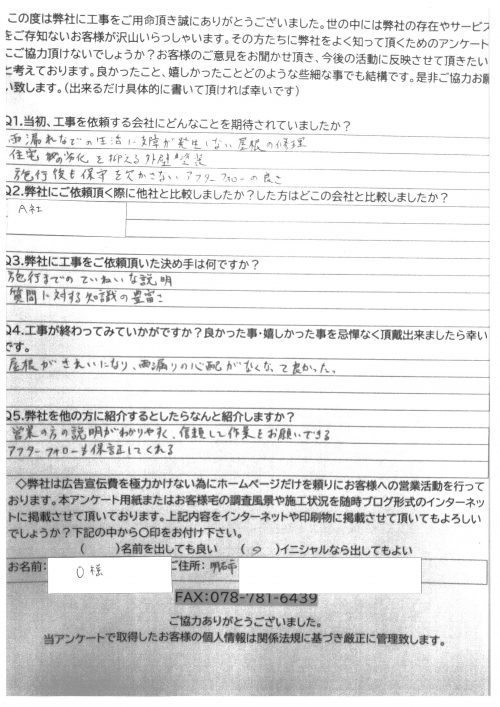 この度は弊社に工事をご用命頂き誠にありがとうございました。世の中には弊社の存在やサービス
をご存知ないお客様が沢山いらっしゃいます。その方たちに弊社をよく知って頂くためのアンケート
にご協力頂けないでしょうか?お客様のご意見をお聞かせ頂き、今後の活動に反映させて頂きたい
と考えております。良かったこと、嬉しかったことどのような些細な事でも結構です。是非ご協力お願
い致します。(出来るだけ具体的に書いて頂ければ幸いです)
Q1.当初、工事を依頼する会社にどんなことを期待されていましたか?
雨漏れなどの生活に支障が発生しない屋根の修理
住宅の劣化を抑える外壁塗装
施行後も保守を欠かさないアフターフォローの良さ
Q2.弊社にご依頼頂く際に他社と比較しましたか?した方はどこの会社と比較しましたか?
A社
Q3.弊社に工事をご依頼頂いた決め手は何ですか?
施行までのていねいな説明
質問に対する知識の豊富さ
Q4.工事が終わってみていかがですか?良かった事・嬉しかった事を忌憚なく頂戴出来ましたら幸い
です。
屋根がきれいになり、雨漏りの心配がなくなって良かった。
Q5.弊社を他の方に紹介するとしたらなんと紹介しますか?
営業の方の説明がわかりやすく、信頼して作業をお願いできる
アフターフォローも保証してくれる
◇弊社は広告宣伝費を極力かけない為にホームページだけを頼りにお客様への営業活動を行って
おります。本アンケート用紙またはお客様宅の調査風景や施工状況を随時ブログ形式のインターネッ
トに掲載させて頂いております。上記内容をインターネットや印刷物に掲載させて頂いてもよろしい
でしょうか?下記の中から〇印をお付け下さい。
( )名前を出しても良い (○)イニシャルなら出してもよい
お名前: O様 ご住所: 明石市
FAX:078-781-6439
ご協力ありがとうございました。
当アンケートで取得したお客様の個人情報は関係法規に基づき厳正に管理致します。